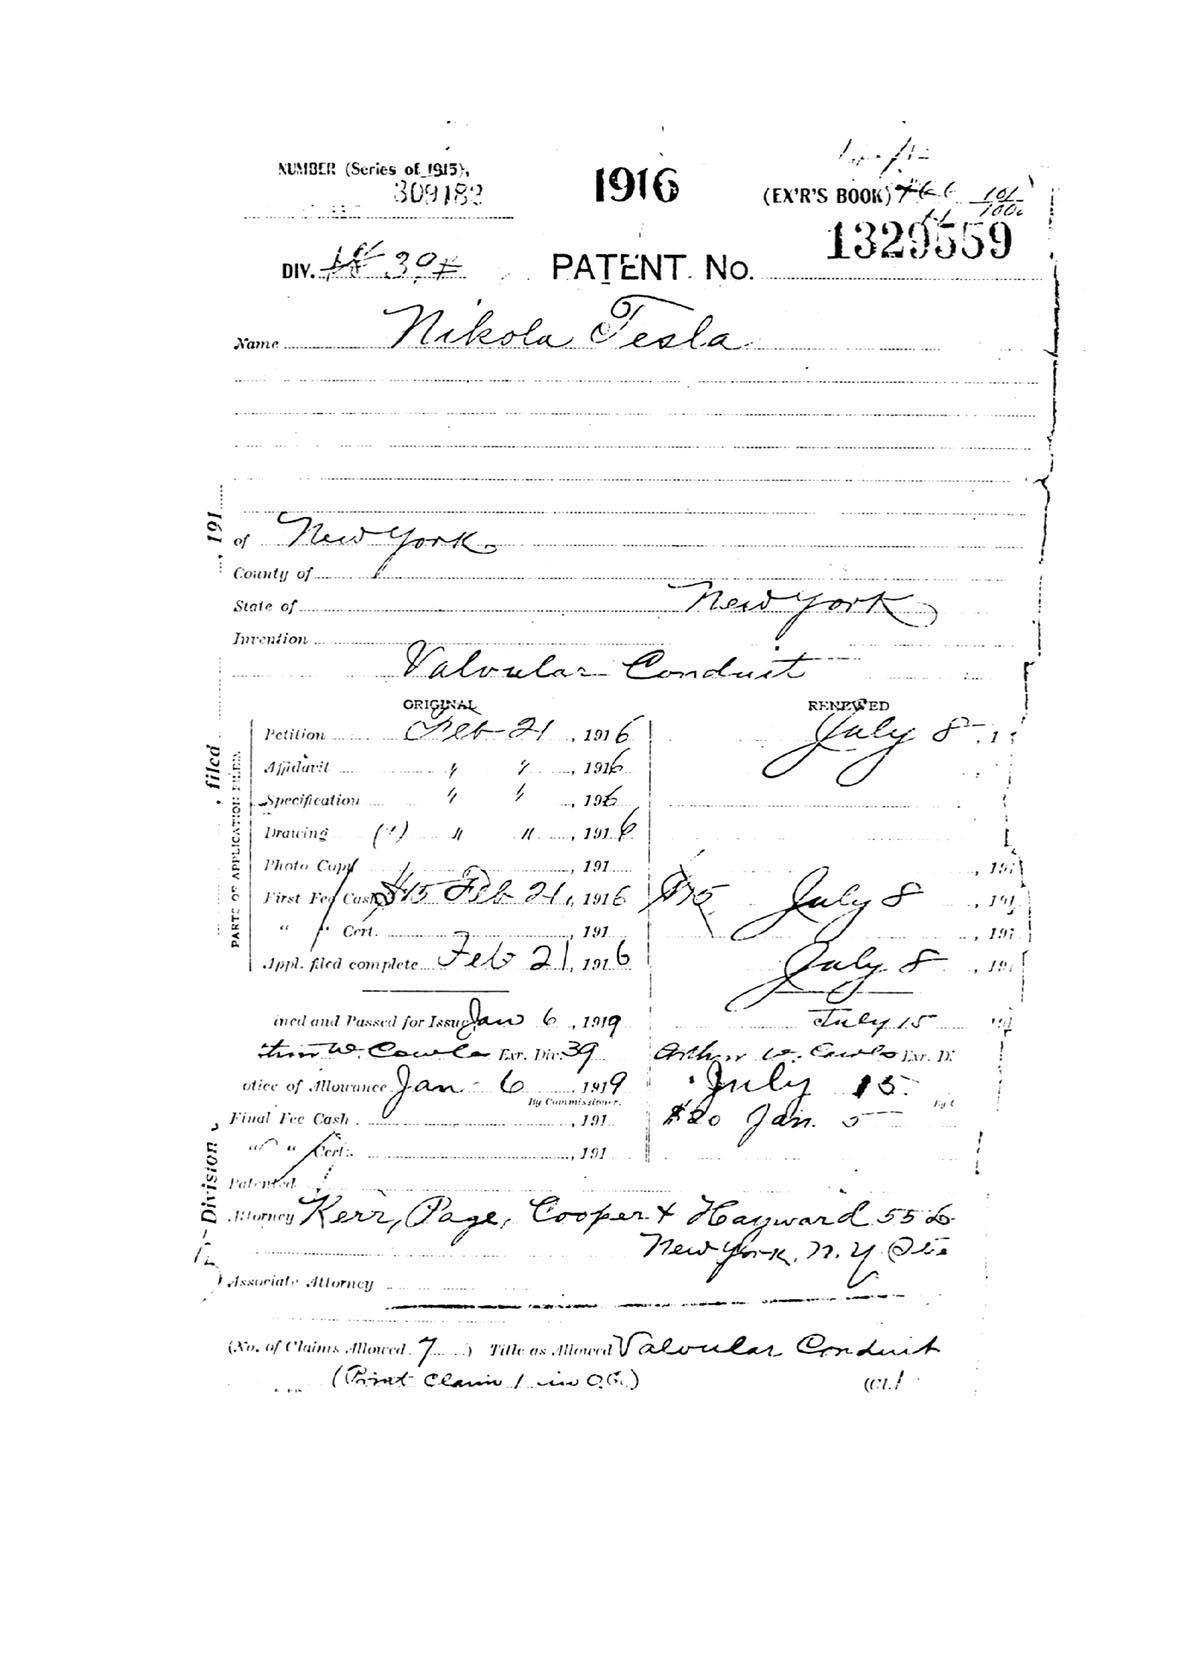 NUMBER (Series of 1915),
309182
1916
(EX'R'S BOOK)
DIV. 39
PATENT No. 1329559
Name Nikola Tesla
of New York
County of
State of New York
Invention
Valvular Conduit
ORIGINAL RENEWED
Petition Feb 21, 1916 July 8
Affidavit " " , 1916
Specification " " , 1916
Drawing (1) " " , 1916
Photo Copy , 191
First Fee Cash $15 Feb 21, 1916 $15 July 8 , 191
" " Cert. , 191 , 191
Appl. filed complete Feb 21, 1916 July 8 , 191
ined and Passed for Issue Jan 6 , 1919 July 15 191
W. Cowles Exr. Div. 39 Arthur W. Cowles Exr. D
otice of Allowance Jan 6 1919 July 15
By Commissioner.
Final Fee Cash , 191 $20 Jan. 5
" " Cert. , 191
Patented
Attorney Kerr, Page, Cooper & Hayward 55
New York, N. Y.
Associate Attorney
(No. of Claims Allowed 7 ) Title as Allowed Valvular Conduit
(Print Claim 1 in O.G.) (Cl.
PARTS OF APPLICATION FILED.
Division , filed , 191